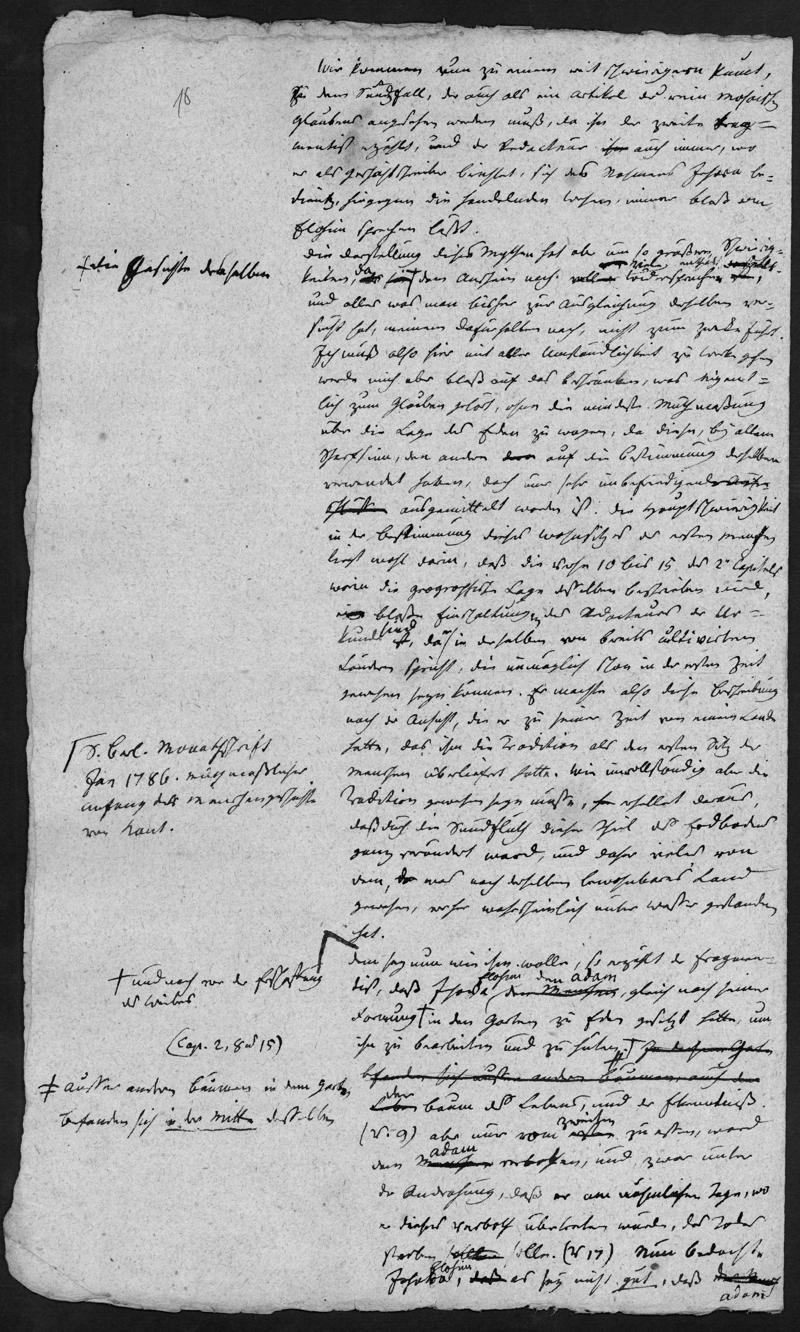 18
Wir kommen nun zu einem weit schwierigern Punct,
zu dem Sündenfall, der auch als ein Artikel des rein mosaischen
Glaubens angesehen werden muß, da ihn der zweite Frag-
mentist erzählt, und der Redacteur auch immer, wo
er als Geschichtschreiber berichtet, sich des Nahmens Jehova be-
dient, hingegen die handelnden Wesen, immer bloß von
Elohim sprechen läßt.
Die Darstellung dieses Mythen hat aber um so größere Schwierig-
keiten, da sie dem Ansehen nach viele Widersprüche enthält,
‡ die Geschichte desselben
und alles was man bisher zur Ausgleichung derselben ver-
sucht hat, meinem Dafürhalten nach, nicht zum Zwecke führt.
Ich muß also hier mit aller Umständlichkeit zu Werke gehen
werde mich aber bloß auf das beschränken, was eigent-
lich zum Glauben gehört, ohne die mindeste Muthmaßung
über die Lage des Eden zu wagen, da dieses, bei allem
Scharfsinn, den andere auf die Bestimmung desselben
verwendet haben, doch nur sehr unbefriedigend
ausgemittelt worden ist. Die Hauptschwierigkeit
in der Bestimmung dieses Wohnsitzes der ersten Menschen
liegt wohl darin, daß die Verse 10 bis 15 des 2n Capitels
worin die geographische Lage desselben beschrieben wird,
bloße Einschaltungen des Redacteurs der Ur-
kunde sind, da er in derselben von bereits cultivirten
Ländern spricht, die unmöglich schon in der ersten Zeit
gewesen seyn können. Er machte also diese Beschreibung
nach der Ansicht, die er zu seiner Zeit von einem Lande
hatte, das ihm die Tradition als den ersten Sitz der
Menschen überliefert hatte. Wie unvollständig aber die
Tradition gewesen seyn müsse, erhellet daraus,
daß durch die Sündfluth dieser Theil des Erdbodens
ganz verändert ward, und daher vieles von
dem, was nach derselben bewohnbares Land
gewesen, vorher wahrscheinlich unter Wasser gestanden
hat.
S. Berl. Monathschrift
Jan 1786. muthmaßlicher
Anfang der Menschengeschichte
von Kant.
Dem sey nun wie ihm wolle, so erzählt der Fragmen-
tist, daß Jehova Elohim den Adam, gleich nach seiner
Formung † in den Garten zu Eden gesetzt hatte, um
ihn zu bearbeiten und zu hüten.
† und noch vor der Erschaffung
des Weibes
(Cap. 2, 8 u 15)
‡ Ausser andern Bäumen in dem Garten,
befanden sich in der Mitte desselben
der Baum des Lebens, und der Erkenntniß.
(V. 9) aber nur vom zweiten zu essen, ward
dem Adam verboten, und zwar unter
der Androhung, daß er am nähmlichen Tage, wo
er dieses Verboth übertreten würde, des Todes
sterben solle. (V 17) Nun bedachte
Jehova Elohim, es sey nicht gut, daß
Adam